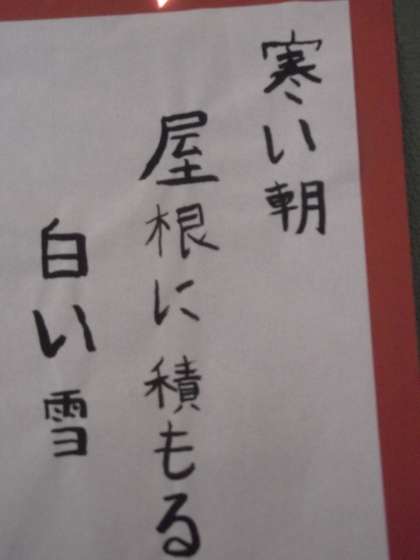 寒い朝
屋根に積もる
白い雪